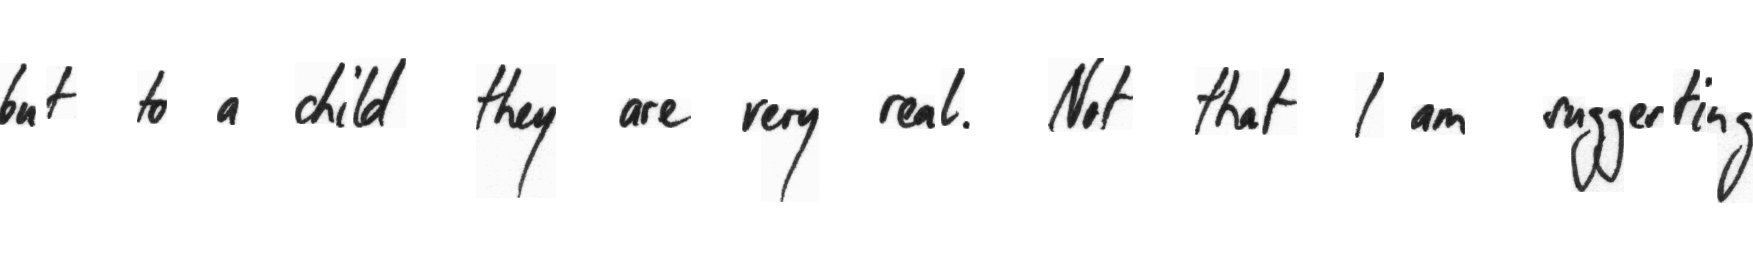 but to a child they are very real. Not that I am suggesting